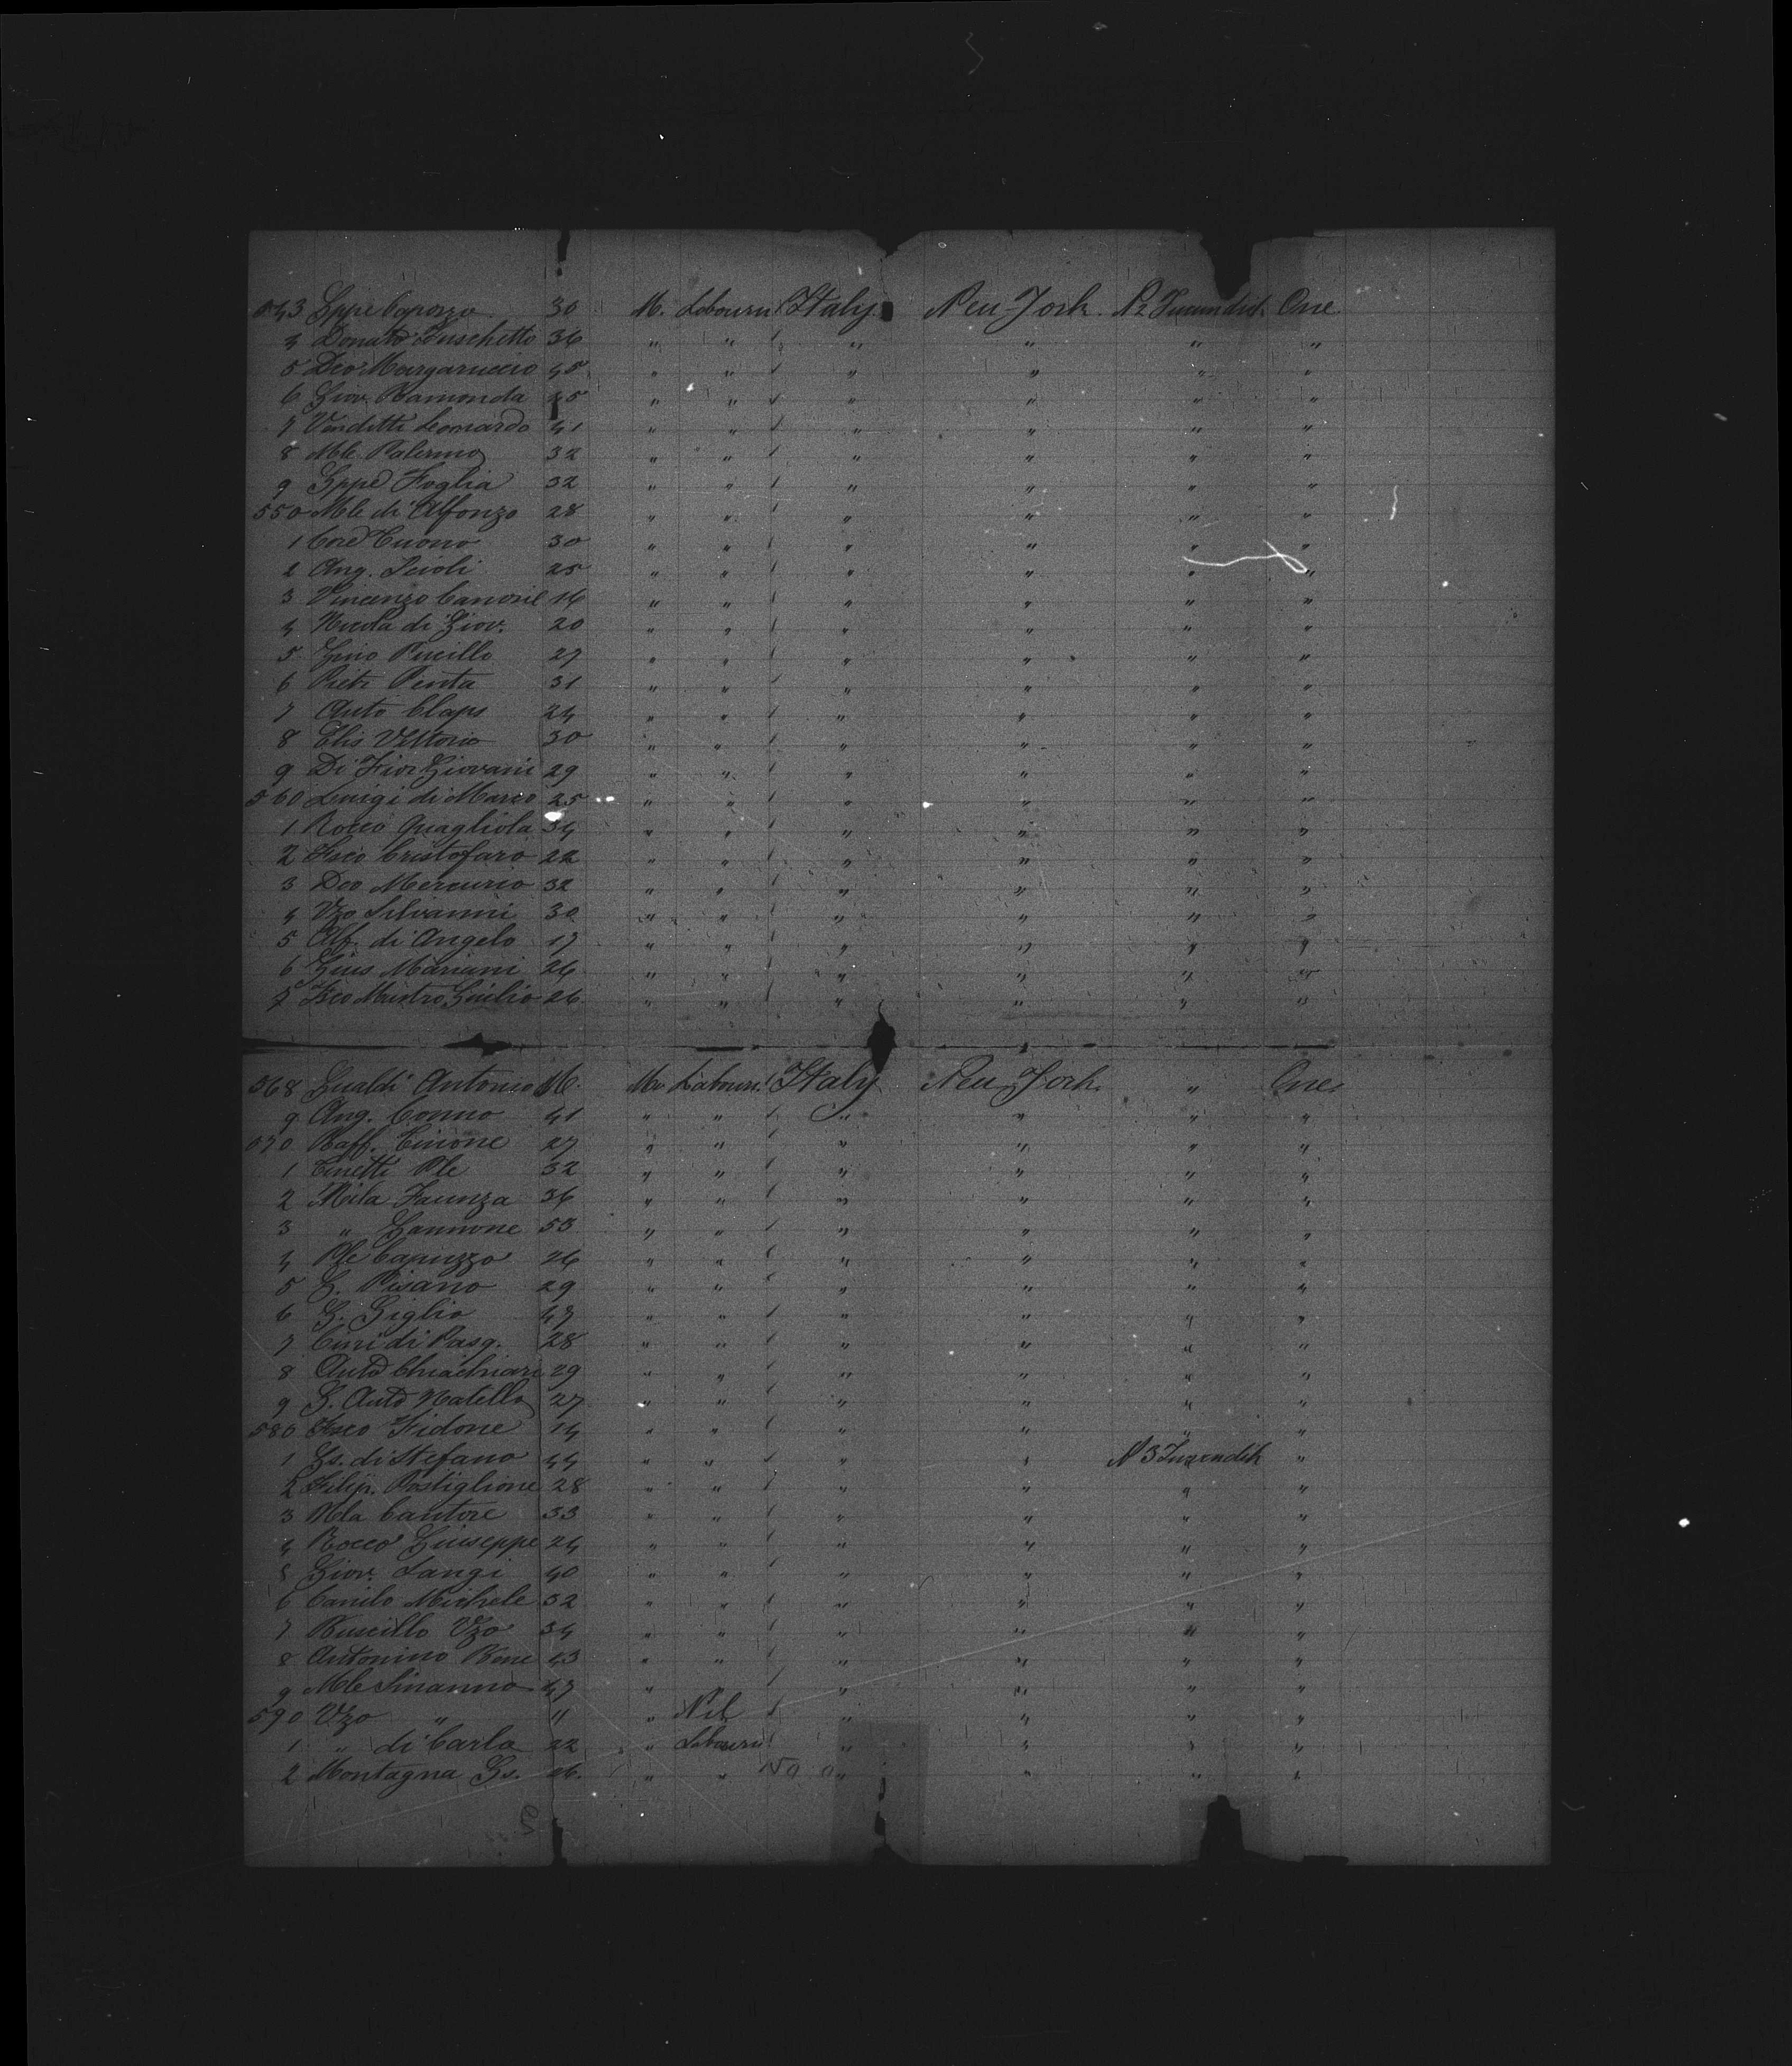 543 Gppe Caporzo 30 M. Labourer Italy New York N2 One
4 Donato Fuschetto 36 " " " " " "
5 Dco Margaruccio 45 " " " " " "
6 Giov. Ramonda 25 " " " " " "
7 Venditti Leonardo 41 " " " " " "
8 Mle Palermo 32 " " " " " "
9 Gppe Foglia 32 " " " " " "
550 Mle di Alfonzo 28 " " " " " "
1 Cuono 30 " " " " " "
2 Ang. Scioli 25 " " " " " "
3 Vincenzo Canonil 16 " " " " " "
4 Nicola di Giov. 20 " " " " " "
5 Pucillo 27 " " " " " "
6 Pietr Penta 31 " " " " " "
7 Anto Claps 24 " " " " " "
8 Elis Vittorio 30 " " " " " "
9 Di Fior Giovani 29 " " " " " "
560 Luigi di Marzo 25 " " " " " "
1 Rocco Quagliola 34 " " " " " "
2 Fsco Cristofaro 22 " " " " " "
3 Dco Mercurio 32 " " " " " "
4 Vzo Silvanni 30 " " " " " "
5 Alf. di Angelo 17 " " " " " "
6 Gius Mariani 26 " " " " " "
7 Fsco Mastro Guilio 26 " " " " " "
568 Gualdi Antonio 16. M. Labour. Italy New York " One
9 Ang. Conno 41 " " " " " "
570 Raff. Cirione 27 " " " " " "
1 Cinetti Ple 32 " " " " " "
2 Nila Faunza 36 " " " " " "
3 " Gannone 53 " " " " " "
4 Rle Capuzzo 26 " " " " " "
5 G. Pisano 29 " " " " " "
6 G. Giglio 47 " " " " " "
7 Ciri di Pasq. 28 " " " " " "
8 Anto Chiachiari 29 " " " " " "
9 G. Anto Natella 27 " " " " " "
580 Fsco Fidone 14 " " " " " "
1 Gs. di Stefano 44 " " " " N 3 "
2 Filip. Postiglione 28 " " " " " "
3 Nla Cantore 33 " " " " " "
4 Rocco Giuseppe 24 " " " " " "
5 Giov. Langi 40 " " " " " "
6 Canilo Michele 32 " " " " " "
7 Ruscillo Vzo 34 " " " " " "
8 Antonino Rene 43 " " " " " "
9 Mle Sinanno 47 " " " " "
590 Vzo " 11 " Nil " " " "
1 " di Carlo 22 " Labourer " " " "
2 Montagna Gs. 26. " " " " " "